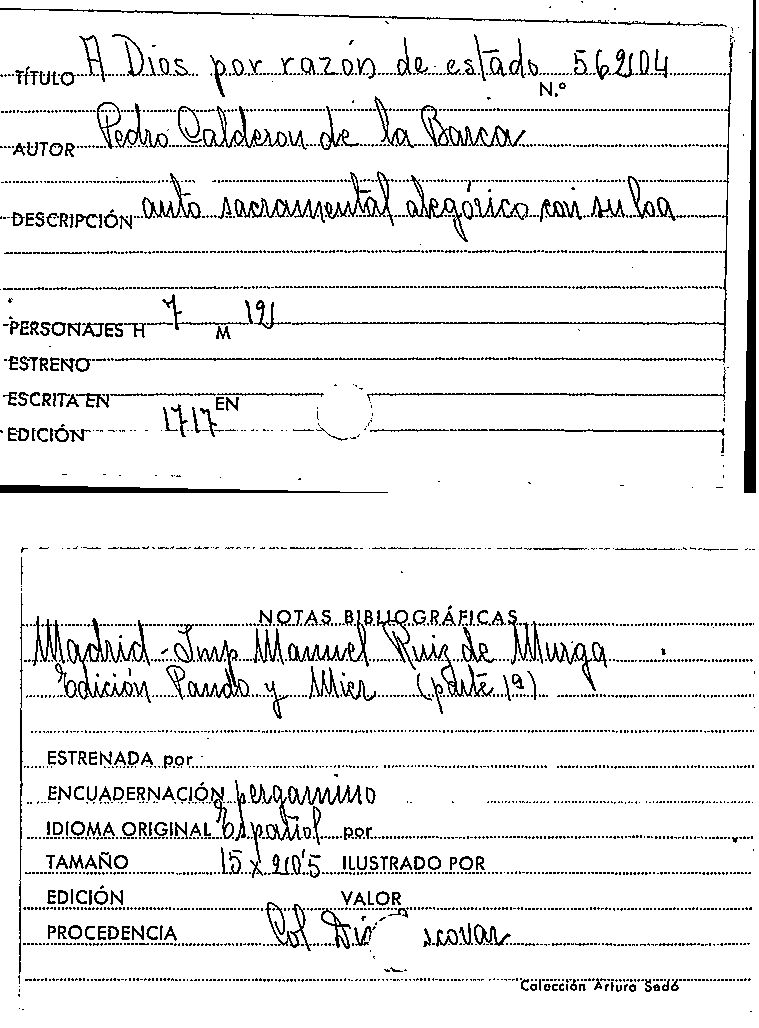 TÍTULO A Dios por razón de estado N.º 56204
AUTOR Pedro Calderon de la Barca
DESCRIPCIÓN auto sacramental alegórico con su loa
PERSONAJES H 7 M 12
ESTRENO
ESCRITA EN EN
EDICIÓN 1717
NOTAS BIBLIOGRÁFICAS
Madrid - Imp Manuel Ruiz de Murga
Edición Pando y Mier (parte 1ª)
ESTRENADA por
ENCUADERNACIÓN pergamino
IDIOMA ORIGINAL Español por
TAMAÑO 15 x 20'5 ILUSTRADO POR
EDICIÓN VALOR
PROCEDENCIA Col
Colección Arturo Sedó